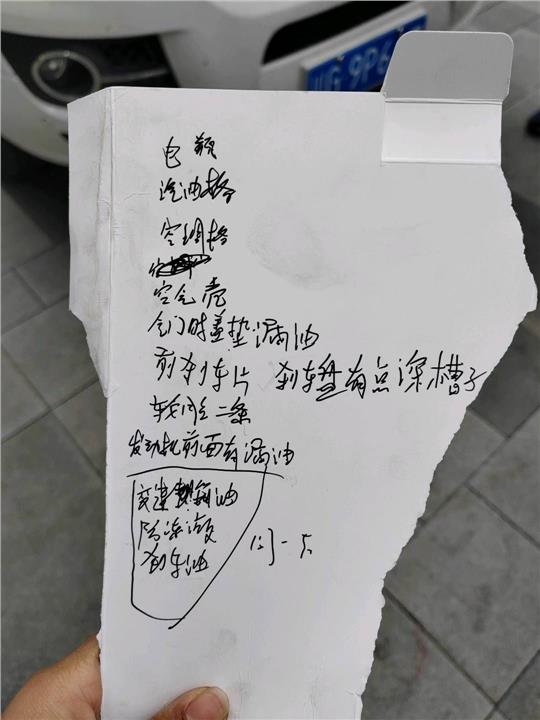 川G 9P6
电瓶
汽油格
空调格
空气壳
气门时盖垫漏油
前刹车片 刹车盘有点深槽子
车轮胎二条
发动机前面有漏油
变速箱油
防冻液
刹车油